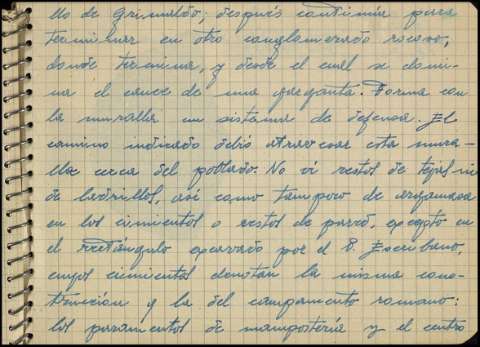 llo de Grimaldo; después continúa para
terminar en otro conglomerado rocoso,
donde termina, y desde el cual se domi-
na el cauce de una garganta. Forma con
la muralla un sistema de defensa. El
camino indicado debió atravesar esta mura-
lla cerca del poblado. No vi restos de tejas ni
de ladrillos, así como tampoco de argamasa
en los cimientos o restos de pared, excepto en
el rectángulo excavado por el P. Escribano,
cuyos cimientos denotan la misma cons-
trucción y la del campamento romano:
los paramentos de mampostería y el centro